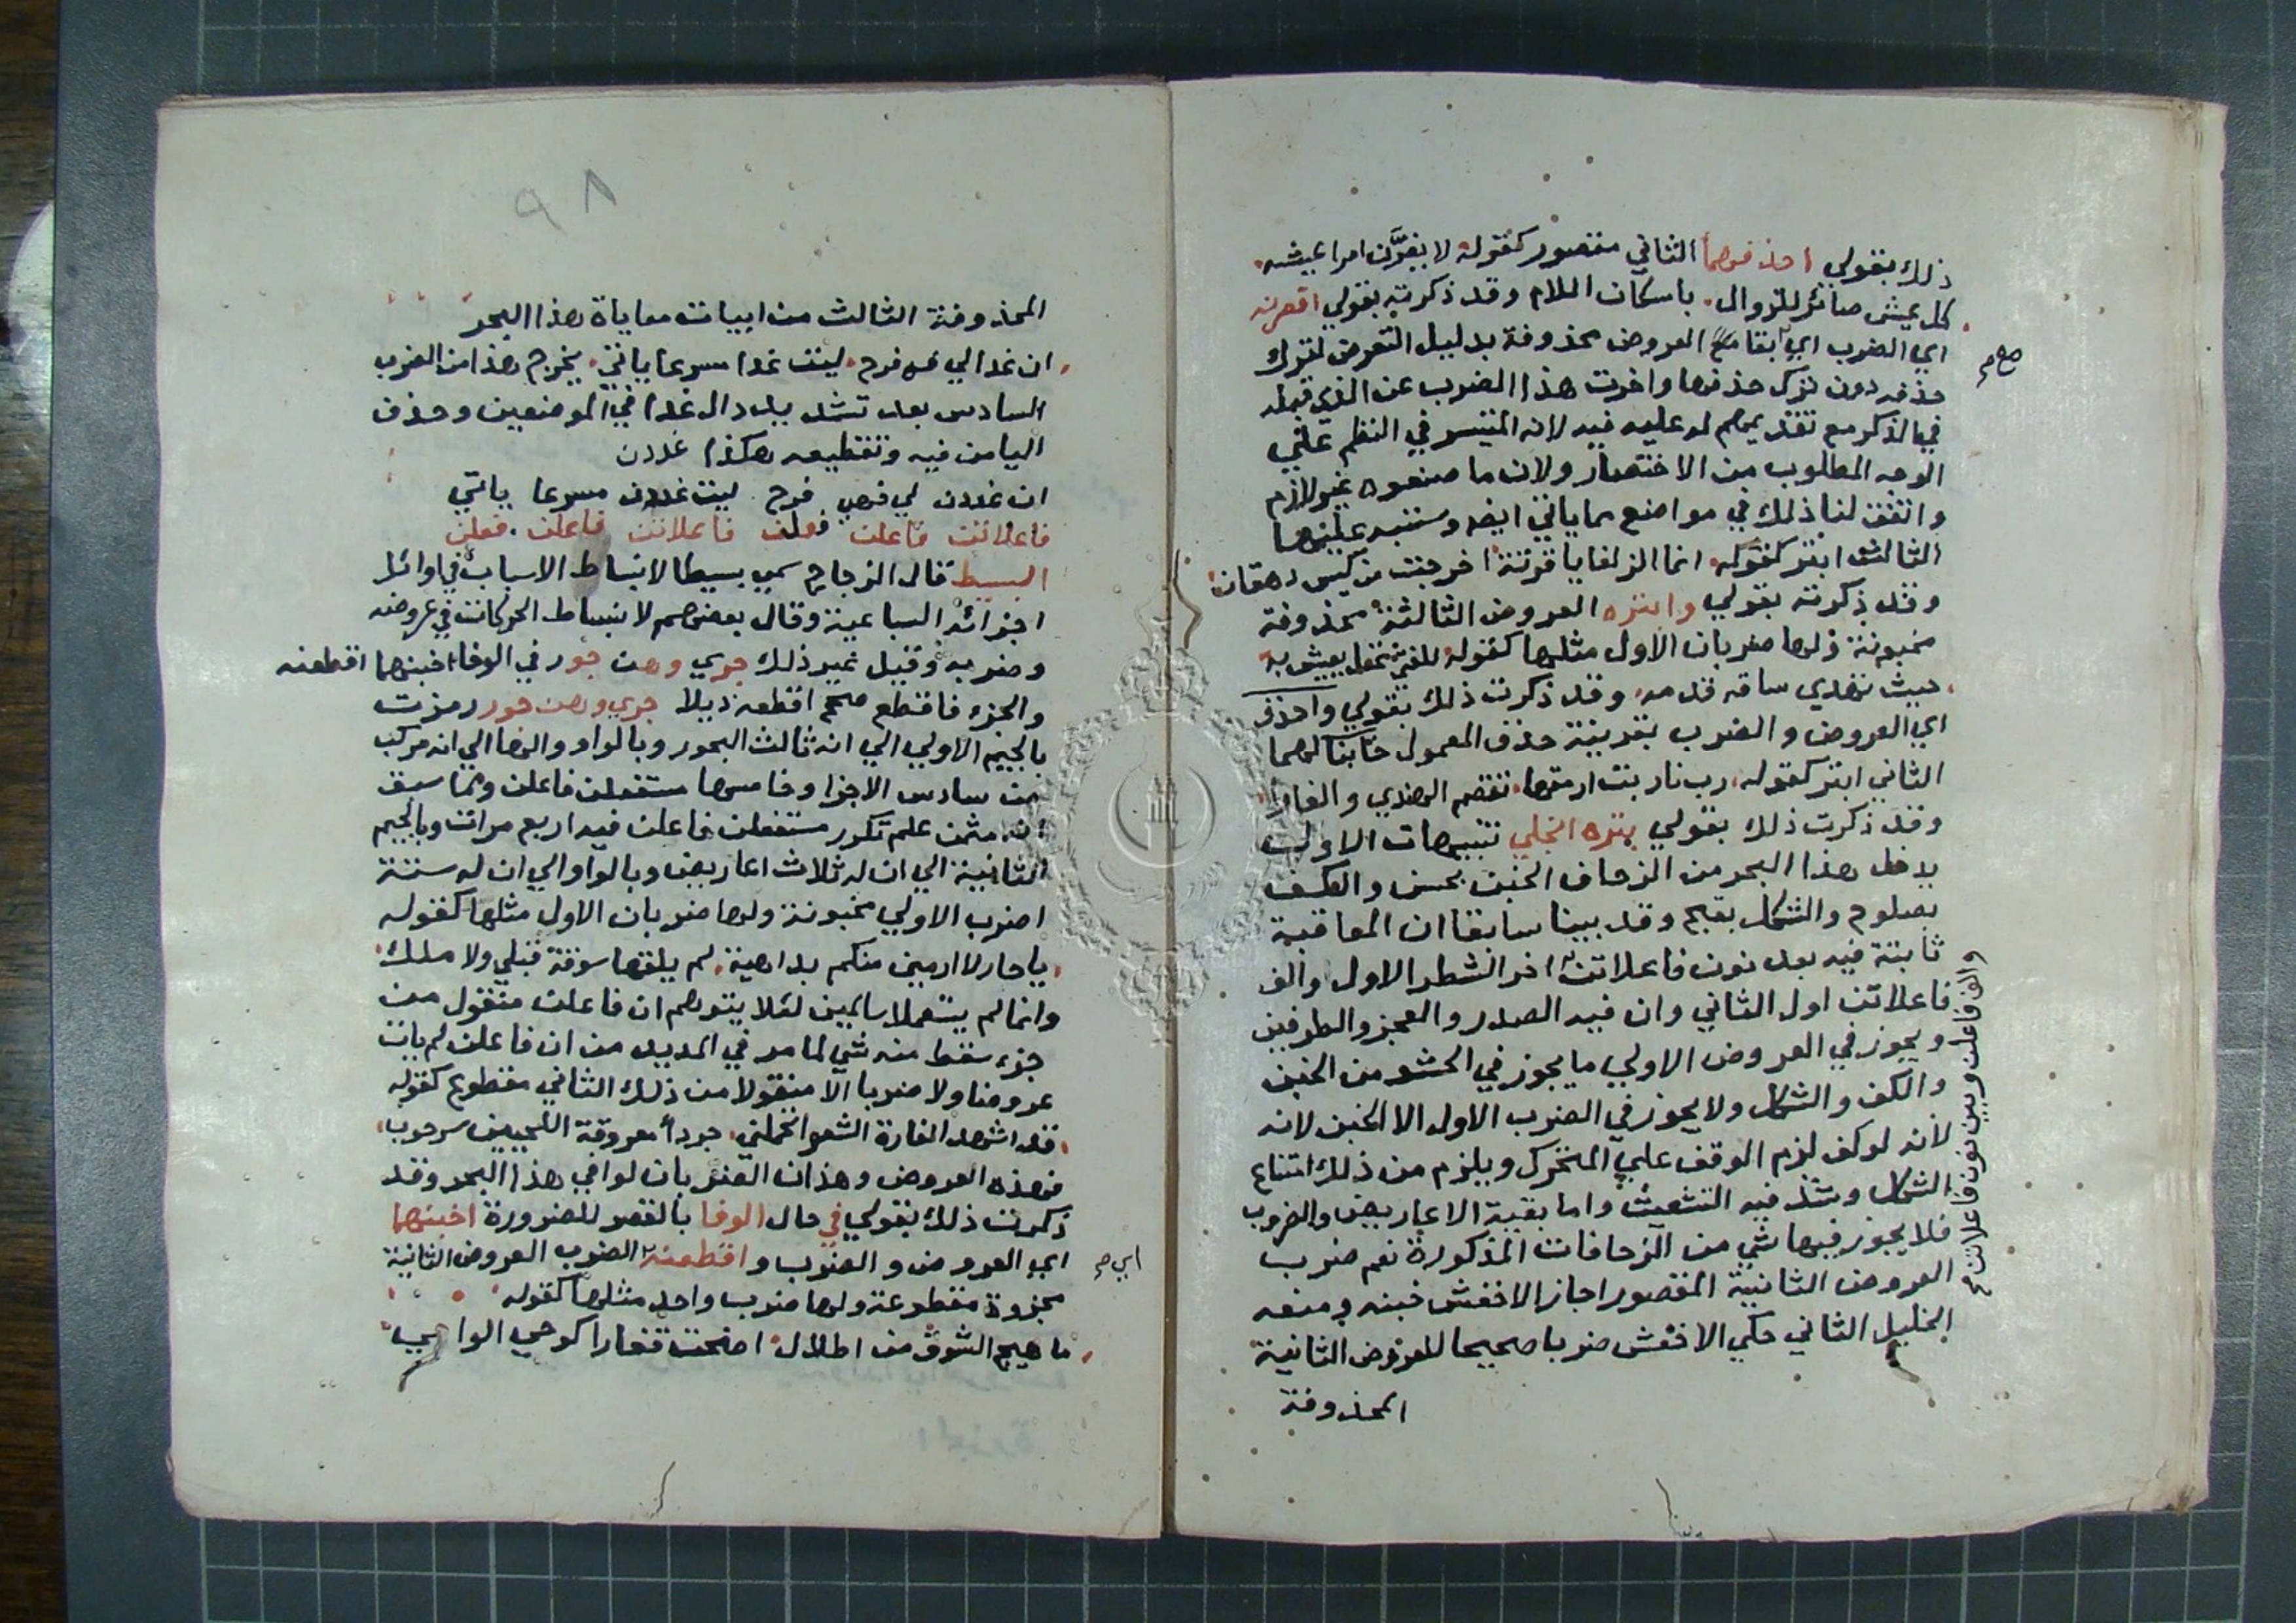 ذلك بقولي احذفهما الثاني مقصور كقوله لا يغرّن امرا عيشه
كل عيش صائر للزوال باسكان اللام وقد ذكرته بقولي اقصرنه
اي الضرب اي ابقا مع العروض محذوفة بدليل التعرض لترك
صح م
حذفه دون ترك حذفها واخرت هذا الضرب عن الذي قبله
في الذكر مع تقديمهم له عليه فيه لانه المتيسر في النظم علي
الوجه المطلوب من الاختصار ولان ما صنعوه غير لازم
واتفق لنا ذلك في مواضع مما ياتي ايضا وسننبه عليها
الثالث ابتر كقوله انما الزلفا ياقوتة اخرجت من كيس دهقان
وقد ذكرته بقولي وابتره العروض الثالثة محذوفة
مخبونة ولها ضربان الاول مثلها كقوله للفتي عقل يعيش به
حيث تهدي ساقه قدمه وقد ذكرت ذلك بقولي واحذف
اي العروض والضرب بقرينة حذف المعمول خابنا لهما
الثاني ابتر كقوله رب نار بت ارمقها تقضم الهندي والغارا
وقد ذكرت ذلك بقولي بتره انجلي تنبيهات الاول
يدخل هذا البحر من الزحاف الخبن بحسن والكف
بصلوح والشكل بقبح وقد بينا سابقا ان المعاقبة
ثابتة فيه بعد نون فاعلاتن اخر الشطر الاول والف
فاعلاتن اول الثاني وان فيه الصدر والعجز والطرفين
والف فاعلن وبين نون فاعلاتن
ويجوز في العروض الاولي ما يجوز في الحشو من الخبن
والكف والشكل ولا يجوز في الضرب الاول الا الخبن لانه
لانه لو كف لزم الوقف علي المتحرك ويلزم من ذلك امتناع
الشكل وشذ فيه التشعيث واما بقية الاعاريض والضروب
فلا يجوز فيها شي من الزحافات المذكورة نعم ضرب
العروض الثانية المقصور اجاز الاخفش خبنه ومنعه
الخليل الثاني حكي الاخفش ضربا صحيحا للعروض الثانية
المحذوفة
٩٨
المحذوفة الثالث من ابيات معاياة هذا البحر
ان غدا لي فرح ليت غدا سرعا ياتي يخرج هذا من الضرب
السادس بعد تشديد دال غدا في الموضعين وحذف
اليا من فيه وتقطيعه هكذا غددن
ان غددن لي فرح ليت غددن مسرعا ياتي
فاعلاتن فاعلن فعلن فاعلاتن فاعلن فعلن
البسيط قال الزجاج سمي بسيطا لانبساط الاسباب في اوائل
اجزائه السباعية وقال بعضهم لانبساط الحركات في عروضه
وضربه وقيل غير ذلك جري وهن جور في الوفا اخبنهما اقطعنه
والجزء فاقطع صحح اقطعه ذيلا جري وهن جور رمزت
بالجيم الاولي الي انه ثالث البحور وبالواو والها الي انه مركب
من سادس الاجزا وخامسها مستفعلن فاعلن ومما سبق
انه مثمن علم تكرر مستفعلن فاعلن فيه اربع مرات وبالجيم
الثانية الي ان له ثلاث اعاريض وبالواو الي ان له ستة
اضرب الاولي مخبونة ولها ضربان الاول مثلها كقوله
يا حار لا ارمين منكم بداهية لم يلقها سوقة قبلي ولا ملك
وانما لم يستعملا سالمين لئلا يتوهم ان فاعلن منقول من
جزء سقط منه شي لما مر في المديد من ان فاعلن لم يات
عروضا ولا ضربا الا منقولا من ذلك الثاني مقطوع كقوله
قد اشهد الغارة الشعوا تحملني جرداً معروقة اللحيين سرحوب
فهذه العروض وهذان الضربان لوافي هذا البحر وقد
ذكرت ذلك بقولي في حال الوفا بالقصر للضرورة اخبنهما
اي العروض والضرب واقطعنه الضرب العروض الثانية
اي م
مجزوة مقطوعة ولها ضرب واحد مثلها كقوله
ما هيج الشوق من اطلال اضحت قفارا كوحي الواحي